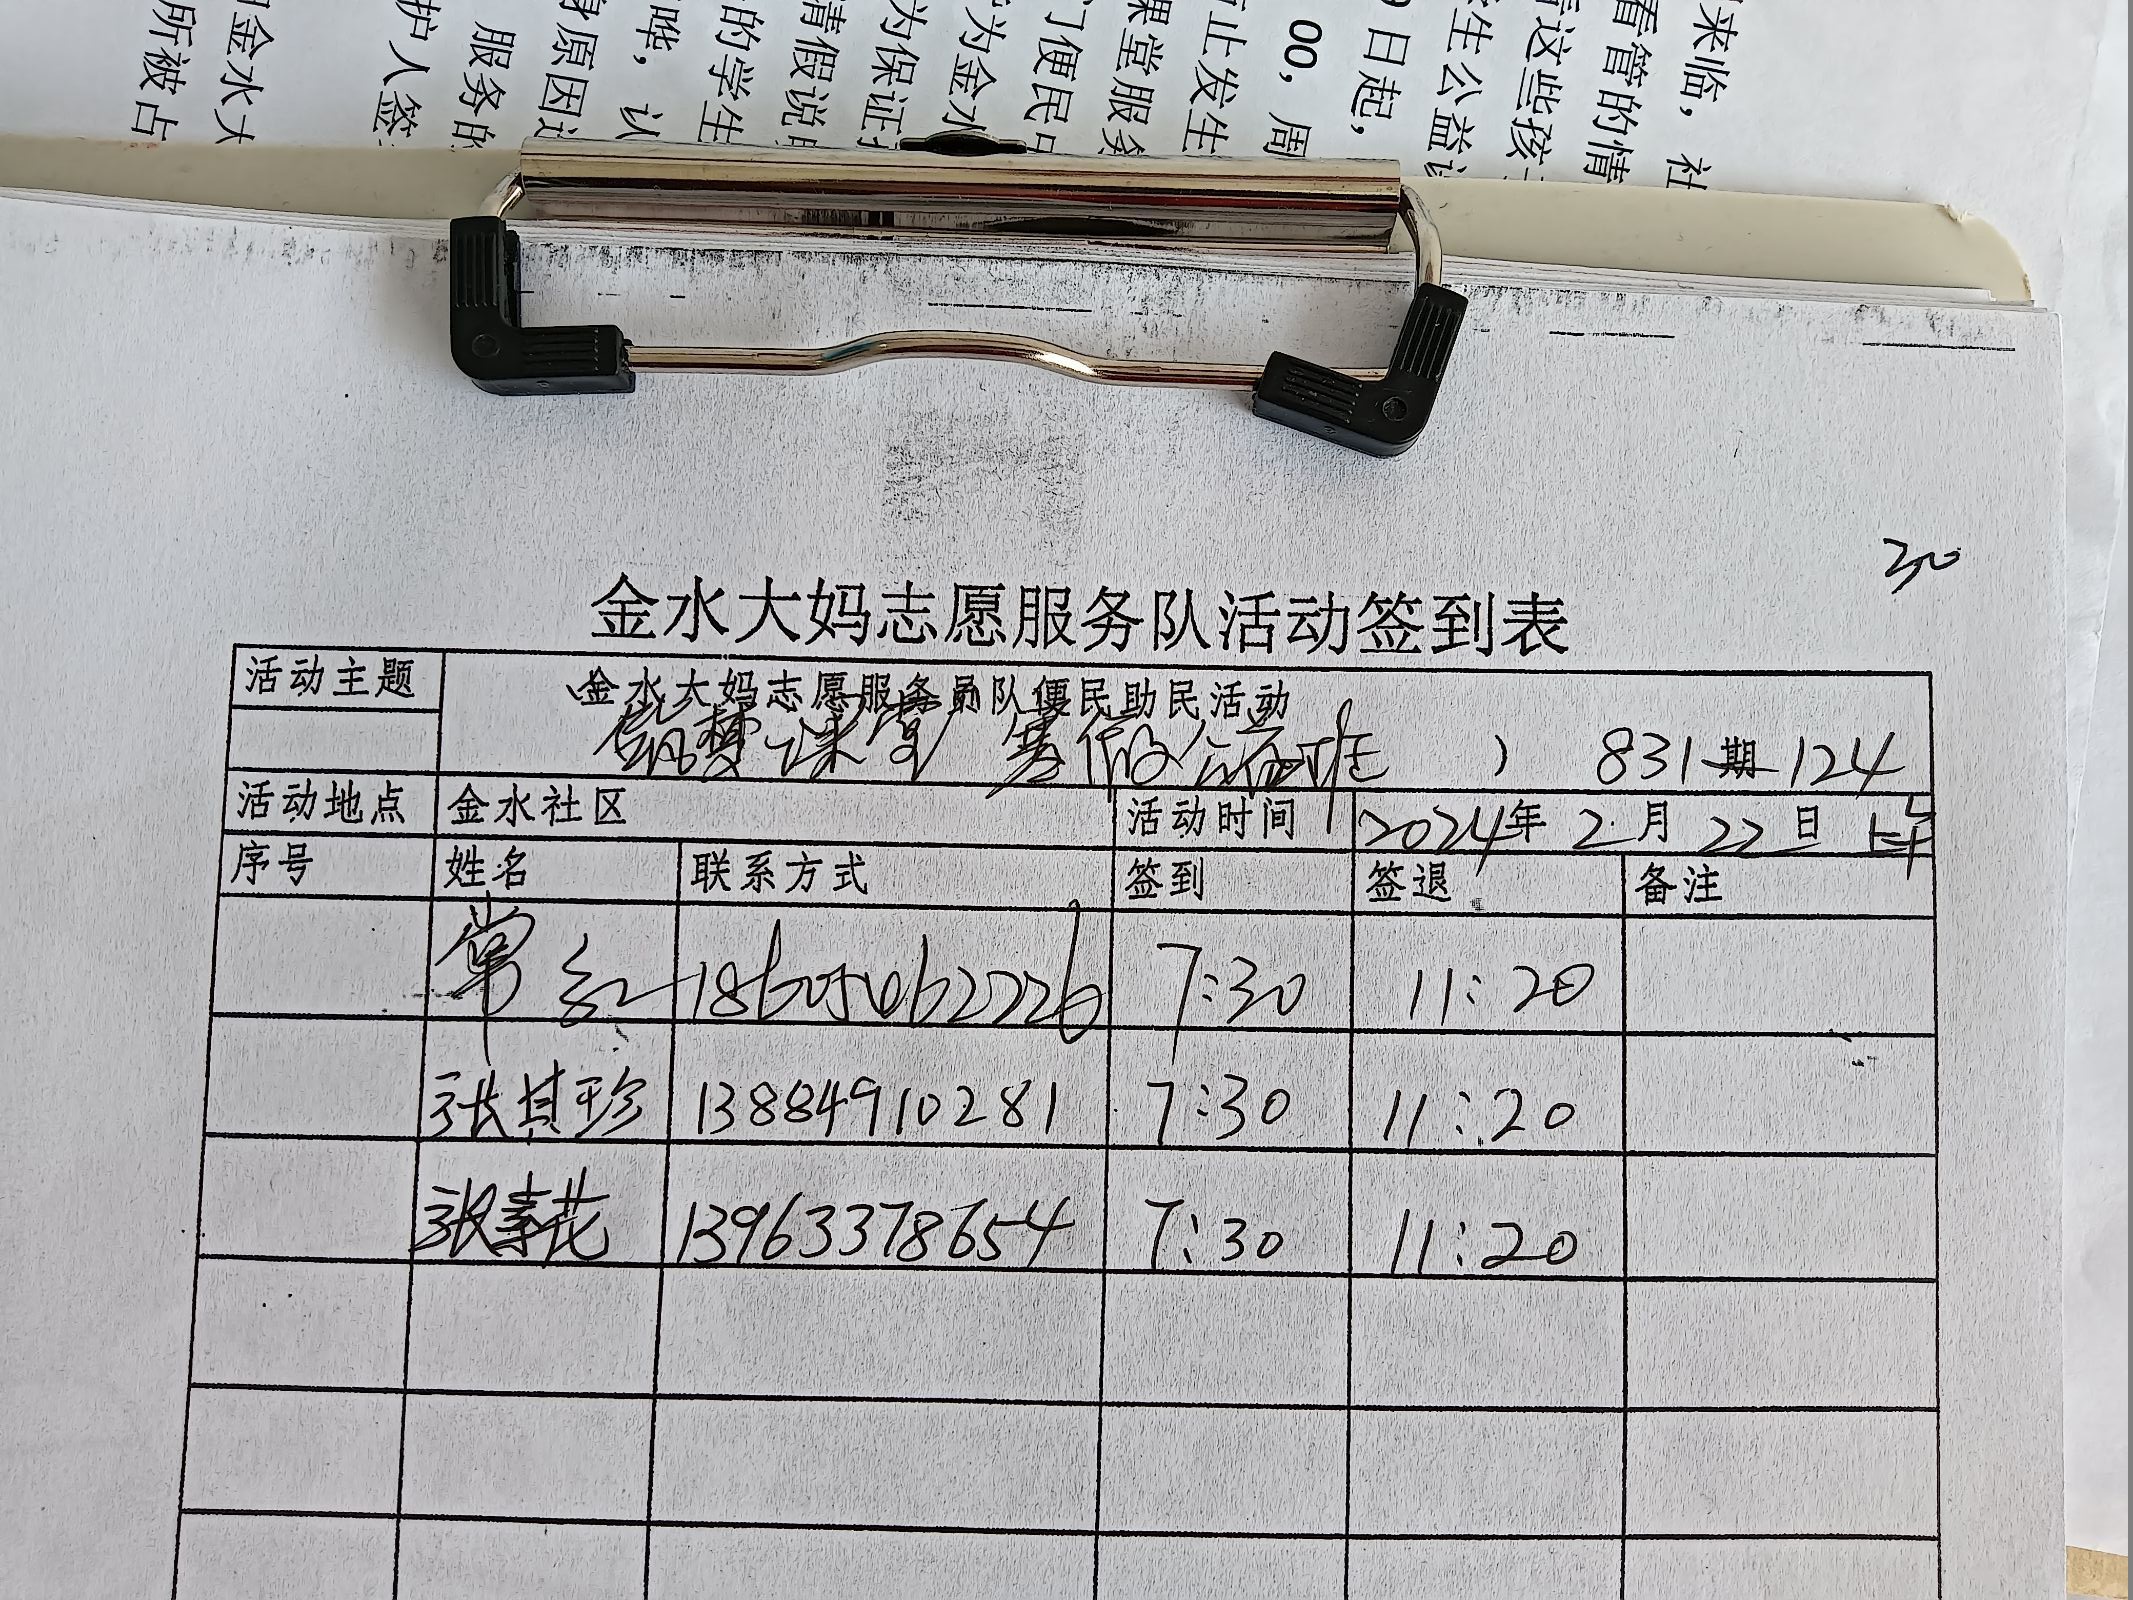 来临，社
看管的情
这些孩
学生公益
9日起，
00，周
止发生
课堂服务
门便民
为金水
为保证
请假说明
的学生
哗，认
身原因
服务的
护人签
金水大
所被占
30
金水大妈志愿服务队活动签到表
活动主题 金水大妈志愿服务队便民助民活动
筑梦课堂 寒假公益班 ) 831期124
活动地点 金水社区 活动时间 2024年2月22日 上午
序号 姓名 联系方式 签到 签退 备注
常红 18605062226 7:30 11:20
张其珍 13884910281 7:30 11:20
张素花 13963378654 7:30 11:20